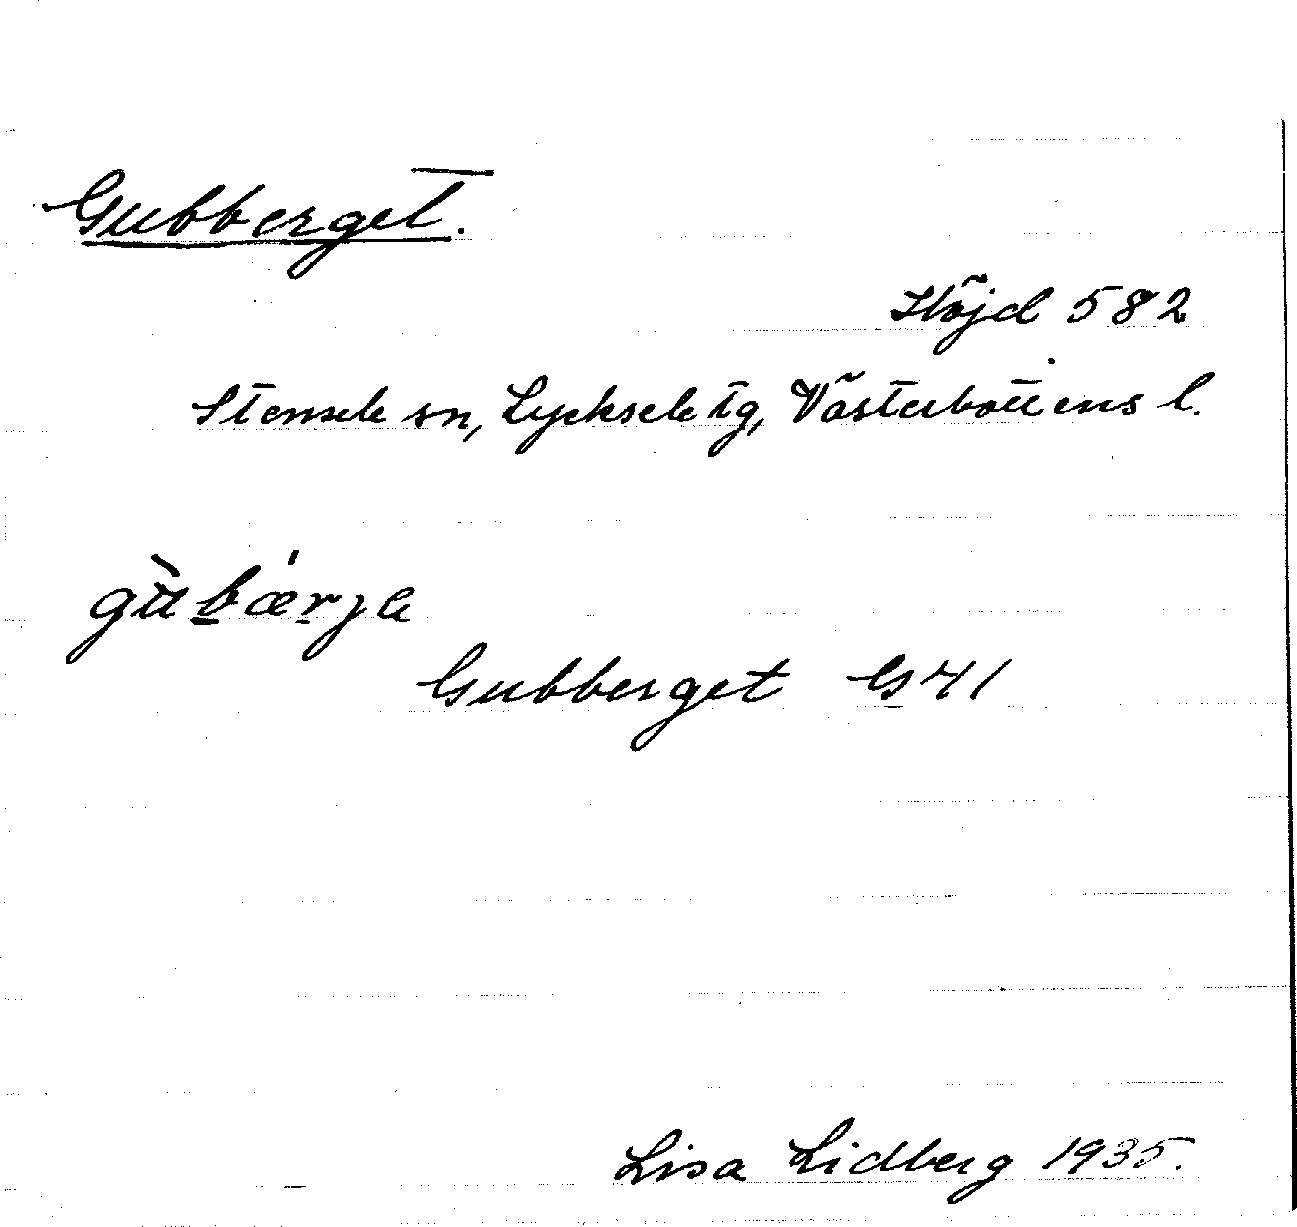 Gubberget.
Höjd 582
Stensele sn, Lycksele tg, Västerbottens l.
gùbæ̀rja
Gubberget G41
Lisa Lidberg 1935.